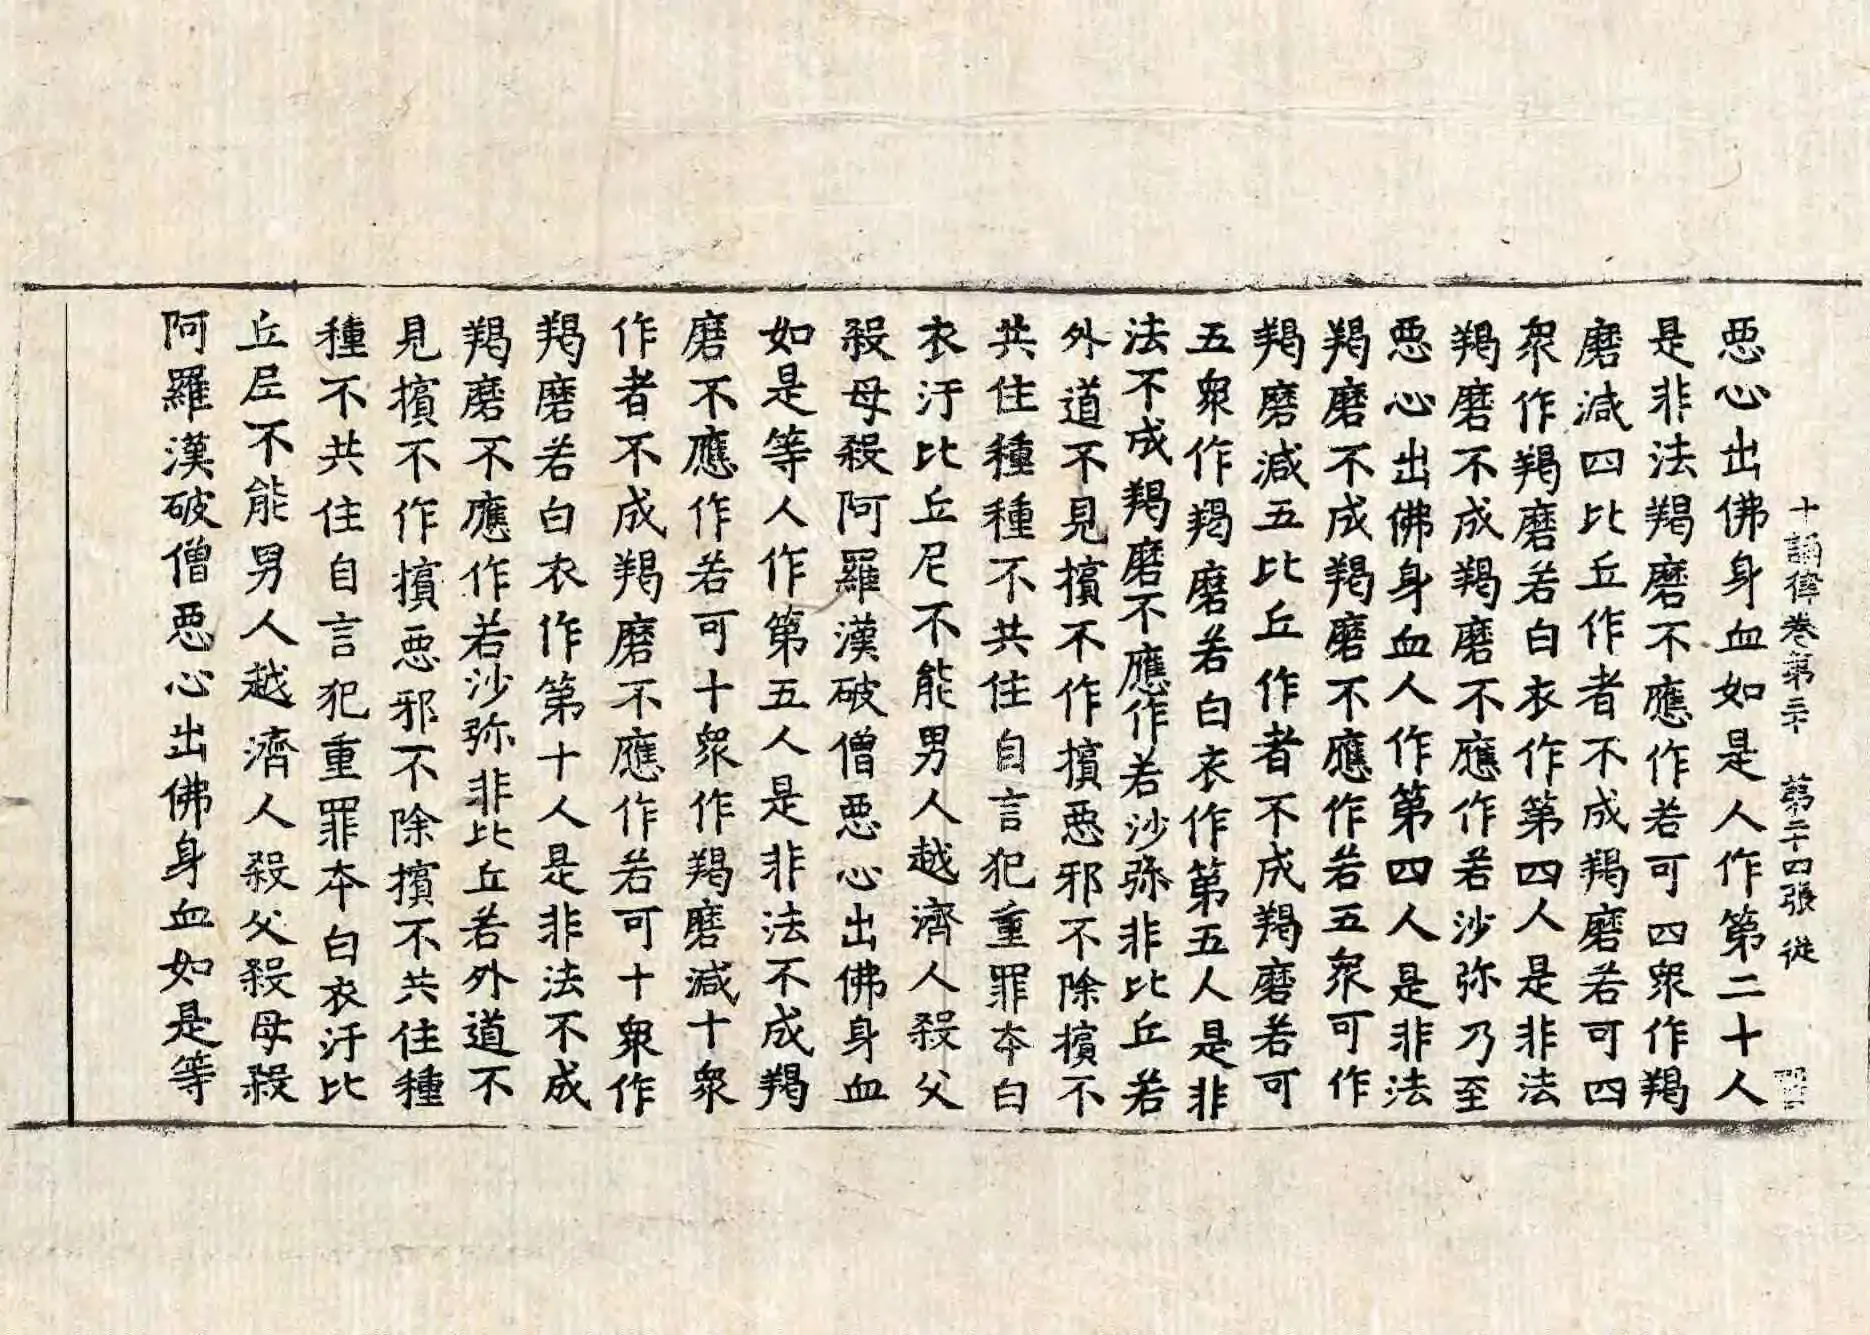 十誦律卷第三十 第二十四張 從
悪心出佛身血如是人作第二十人
是非法羯磨不應作若可四衆作羯
磨減四比丘作者不成羯磨若可四
衆作羯磨若白衣作第四人是非法
羯磨不成羯磨不應作若沙弥乃至
悪心出佛身血人作第四人是非法
羯磨不成羯磨不應作若五衆可作
羯磨減五比丘作者不成羯磨若可
五衆作羯磨若白衣作第五人是非
法不成羯磨不應作若沙弥非比丘若
外道不見擯不作擯悪邪不除擯不
共住種種不共住自言犯重罪夲白
衣汙比丘尼不能男人越濟人殺父
殺母殺阿羅漢破僧悪心出佛身血
如是等人作第五人是非法不成羯
磨不應作若可十衆作羯磨減十衆
作者不成羯磨不應作若可十衆作
羯磨若白衣作第十人是非法不成
羯磨不應作若沙弥非比丘若外道不
見擯不作擯悪邪不除擯不共住種
種不共住自言犯重罪夲白衣汙比
丘尼不能男人越濟人殺父殺母殺
阿羅漢破僧悪心出佛身血如是等